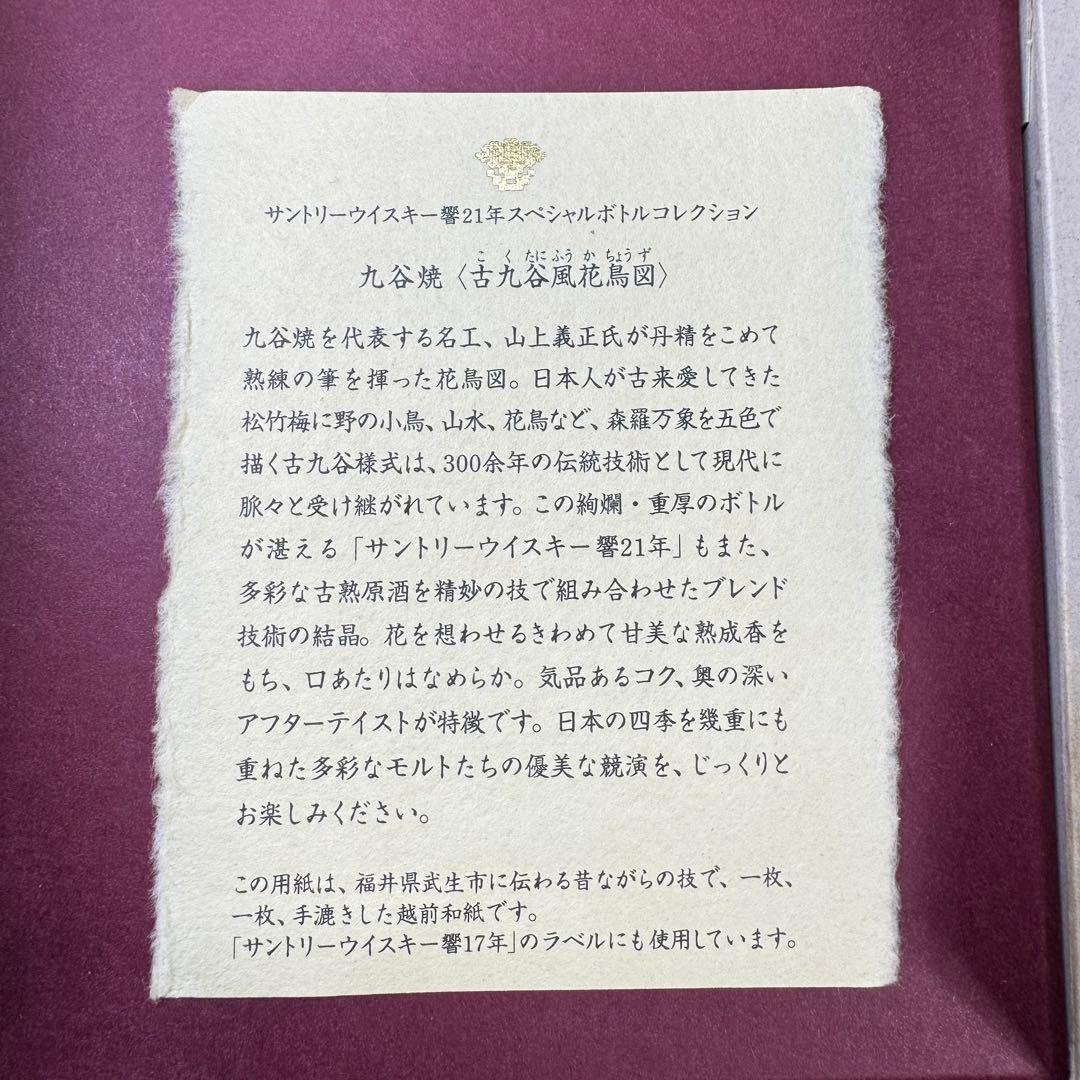 サントリーウイスキー響21年スペシャルボトルコレクション
こくたにふうかちょうず
九谷焼〈古九谷風花鳥図〉
九谷焼を代表する名工、山上義正氏が丹精をこめて
熟練の筆を揮った花鳥図。日本人が古来愛してきた
松竹梅に野の小鳥、山水、花鳥など、森羅万象を五色で
描く古九谷様式は、300余年の伝統技術として現代に
脈々と受け継がれています。この絢爛・重厚のボトル
が湛える「サントリーウイスキー響21年」もまた、
多彩な古熟原酒を精妙の技で組み合わせたブレンド
技術の結晶。花を想わせるきわめて甘美な熟成香を
もち、口あたりはなめらか。気品あるコク、奥の深い
アフターテイストが特徴です。日本の四季を幾重にも
重ねた多彩なモルトたちの優美な競演を、じっくりと
お楽しみください。
この用紙は、福井県武生市に伝わる昔ながらの技で、一枚、
一枚、手漉きした越前和紙です。
「サントリーウイスキー響17年」のラベルにも使用しています。